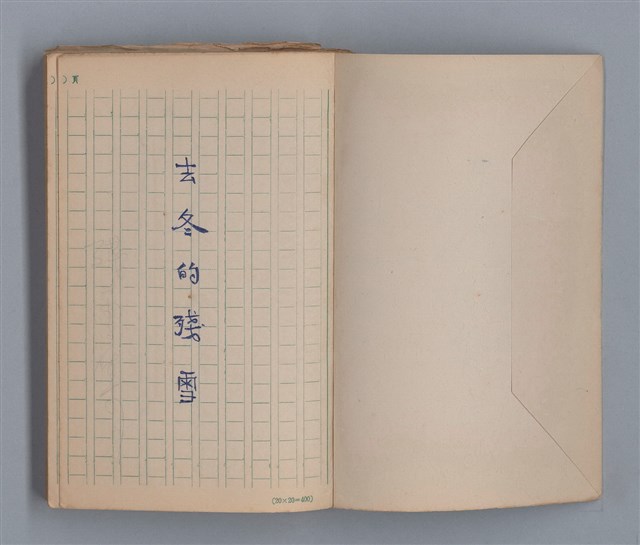 去冬的殘雪
(20×20=400)